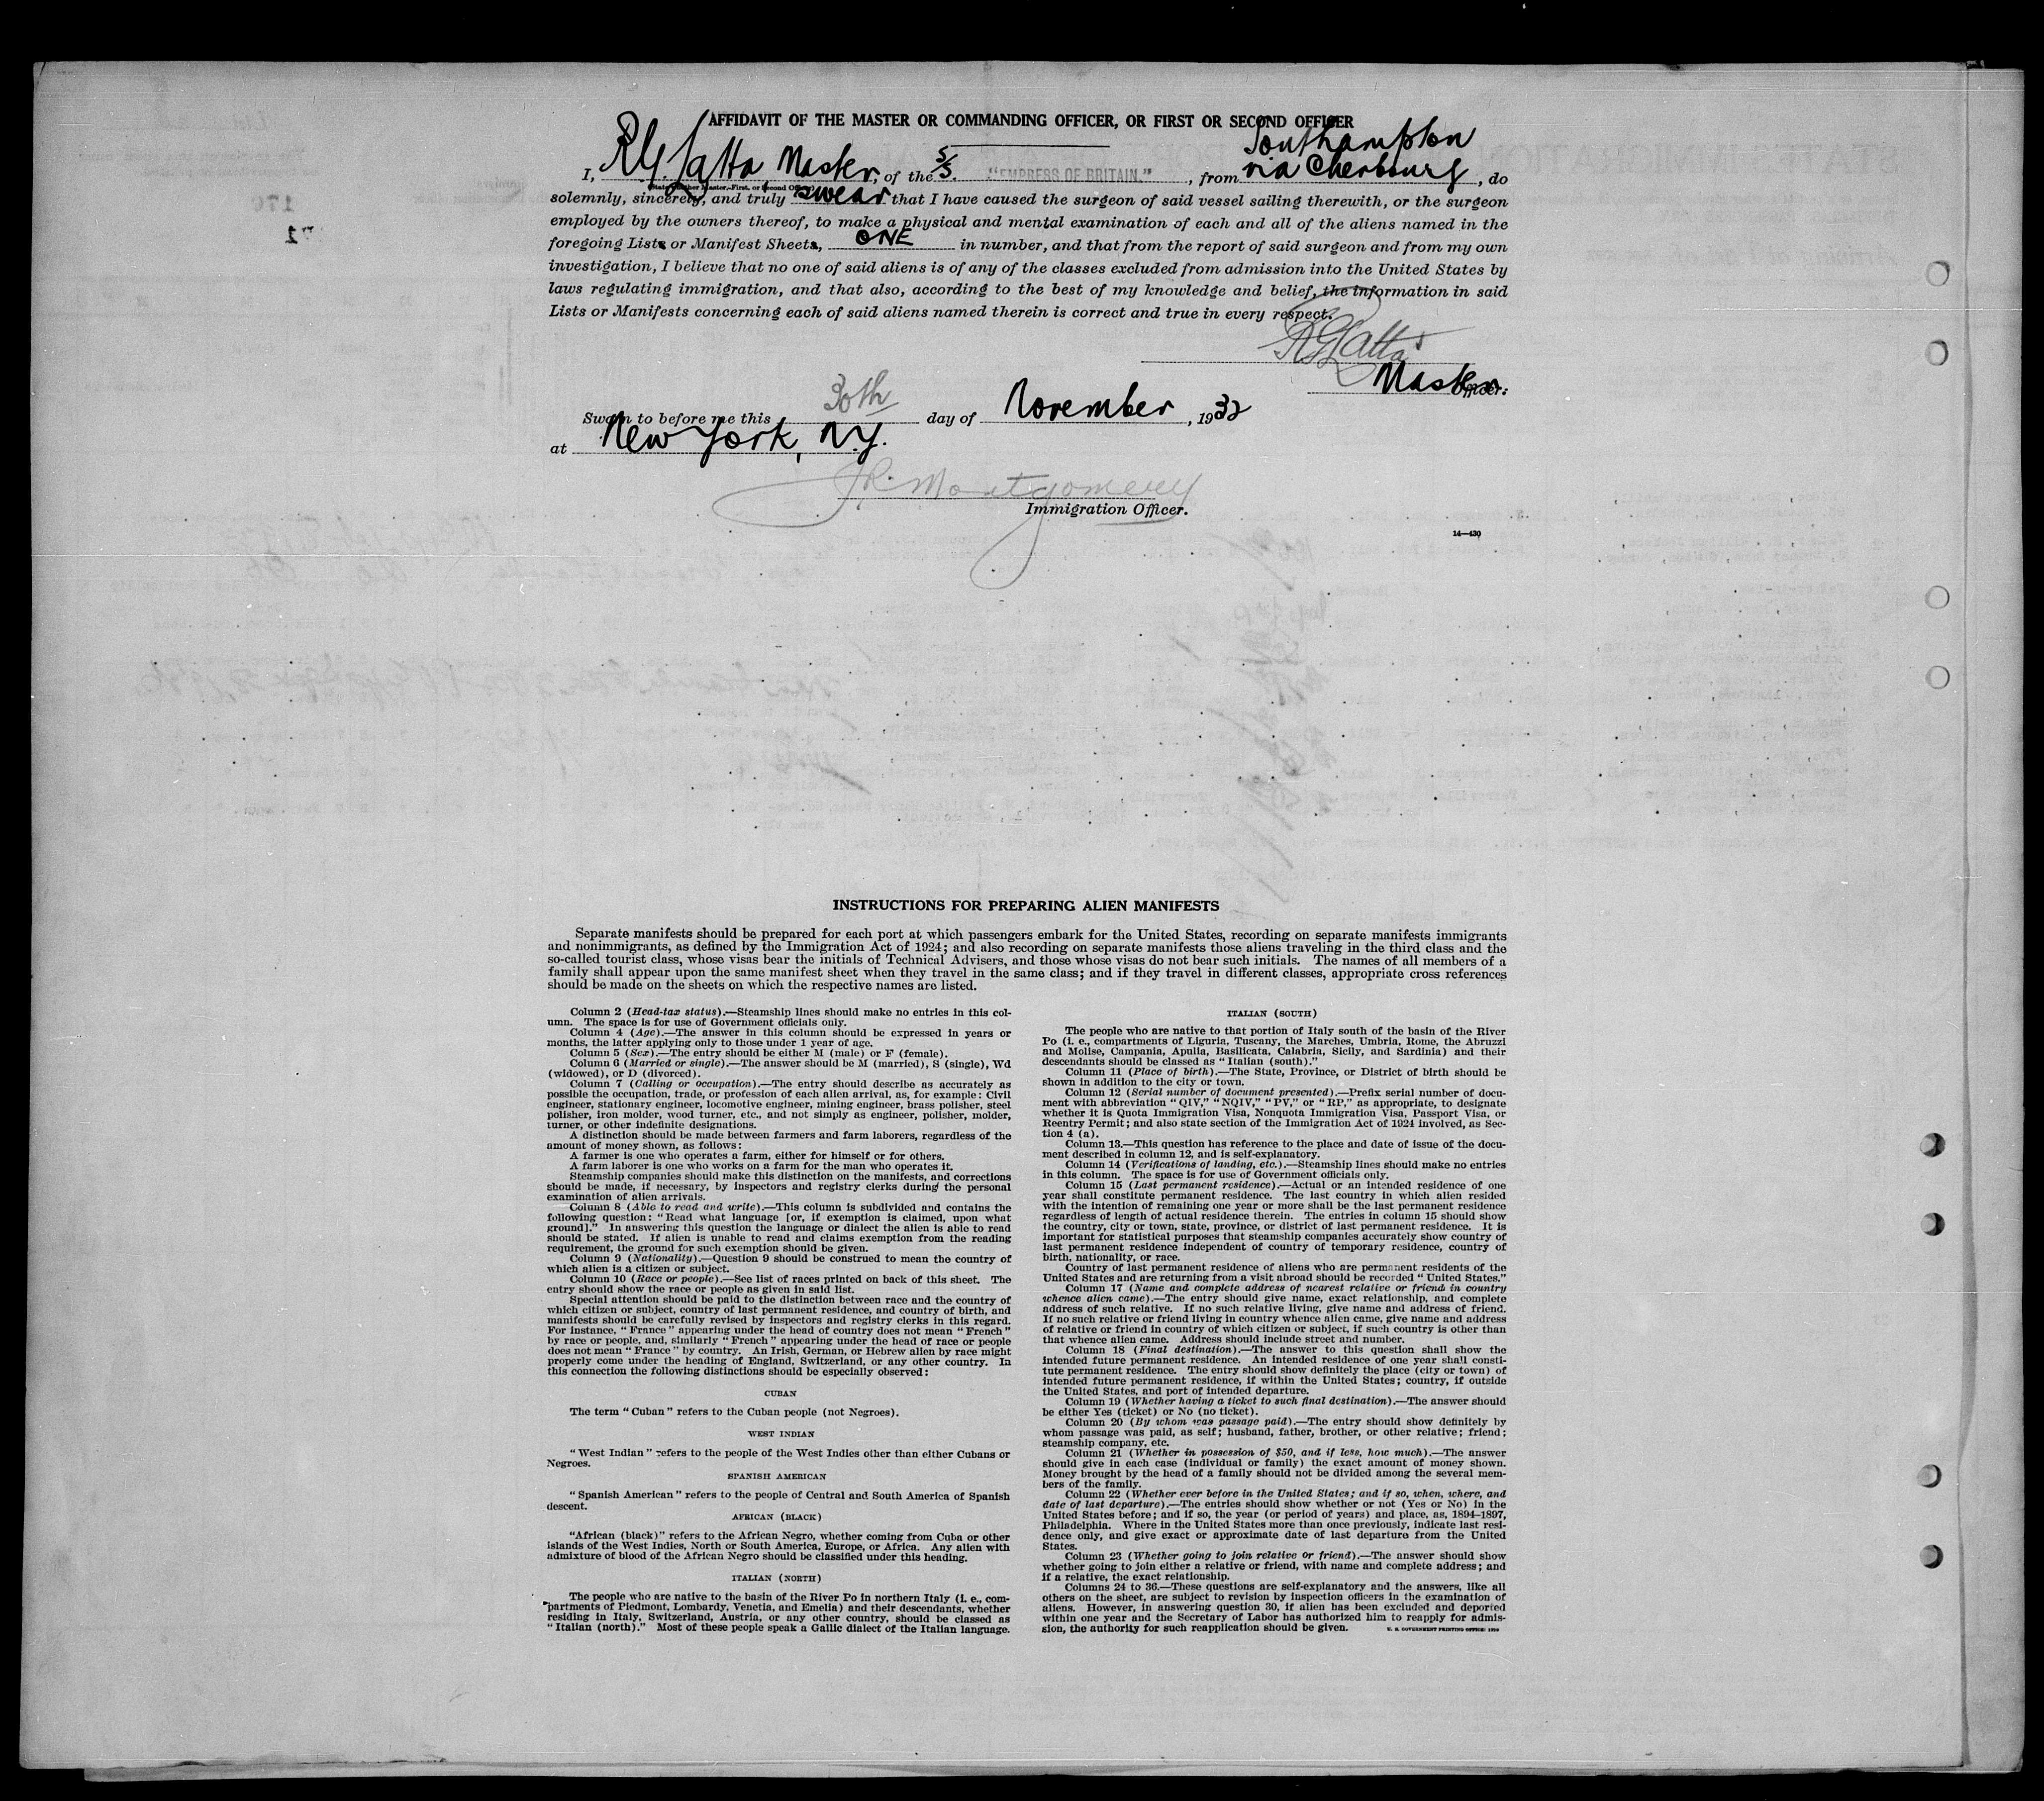 AFFIDAVIT OF THE MASTER OR COMMANDING OFFICER, OR FIRST OR SECOND OFFICER
Southampton
I, R.G. Latta Master, of the S/S. "EMPRESS OF BRITAIN." , from via Cherbourg , do
(State whether Master, First, or Second Officer)
solemnly, sincerely, and truly swear that I have caused the surgeon of said vessel sailing therewith, or the surgeon
employed by the owners thereof, to make a physical and mental examination of each and all of the aliens named in the
foregoing Lists or Manifest Sheets, ONE in number, and that from the report of said surgeon and from my own
investigation, I believe that no one of said aliens is of any of the classes excluded from admission into the United States by
laws regulating immigration, and that also, according to the best of my knowledge and belief, the information in said
Lists or Manifests concerning each of said aliens named therein is correct and true in every respect.
RGLatta
Master
Officer.
Sworn to before me this 30th day of November , 1932
at New York, N.Y.
JR Montgomery
Immigration Officer.
14—430
INSTRUCTIONS FOR PREPARING ALIEN MANIFESTS
Separate manifests should be prepared for each port at which passengers embark for the United States, recording on separate manifests immigrants
and nonimmigrants, as defined by the Immigration Act of 1924; and also recording on separate manifests those aliens traveling in the third class and the
so-called tourist class, whose visas bear the initials of Technical Advisers, and those whose visas do not bear such initials. The names of all members of a
family shall appear upon the same manifest sheet when they travel in the same class; and if they travel in different classes, appropriate cross references
should be made on the sheets on which the respective names are listed.
Column 2 (Head-tax status).—Steamship lines should make no entries in this col-
umn. The space is for use of Government officials only.
Column 4 (Age).—The answer in this column should be expressed in years or
months, the latter applying only to those under 1 year of age.
Column 5 (Sex).—The entry should be either M (male) or F (female).
Column 6 (Married or single).—The answer should be M (married), S (single), Wd
(widowed), or D (divorced).
Column 7 (Calling or occupation).—The entry should describe as accurately as
possible the occupation, trade, or profession of each alien arrival, as, for example: Civil
engineer, stationary engineer, locomotive engineer, mining engineer, brass polisher, steel
polisher, iron molder, wood turner, etc., and not simply as engineer, polisher, molder,
turner, or other indefinite designations.
A distinction should be made between farmers and farm laborers, regardless of the
amount of money shown, as follows:
A farmer is one who operates a farm, either for himself or for others.
A farm laborer is one who works on a farm for the man who operates it.
Steamship companies should make this distinction on the manifests, and corrections
should be made, if necessary, by inspectors and registry clerks during the personal
examination of alien arrivals.
Column 8 (Able to read and write).—This column is subdivided and contains the
following question: "Read what language [or, if exemption is claimed, upon what
ground]." In answering this question the language or dialect the alien is able to read
should be stated. If alien is unable to read and claims exemption from the reading
requirement, the ground for such exemption should be given.
Column 9 (Nationality).—Question 9 should be construed to mean the country of
which alien is a citizen or subject.
Column 10 (Race or people).—See list of races printed on back of this sheet. The
entry should show the race or people as given in said list.
Special attention should be paid to the distinction between race and the country of
which citizen or subject, country of last permanent residence, and country of birth, and
manifests should be carefully revised by inspectors and registry clerks in this regard.
For instance, "France" appearing under the head of country does not mean "French"
by race or people, and, similarly "French" appearing under the head of race or people
does not mean "France" by country. An Irish, German, or Hebrew alien by race might
properly come under the heading of England, Switzerland, or any other country. In
this connection the following distinctions should be especially observed:
CUBAN
The term "Cuban" refers to the Cuban people (not Negroes).
WEST INDIAN
"West Indian" refers to the people of the West Indies other than either Cubans or
Negroes.
SPANISH AMERICAN
"Spanish American" refers to the people of Central and South America of Spanish
descent.
AFRICAN (BLACK)
"African (black)" refers to the African Negro, whether coming from Cuba or other
islands of the West Indies, North or South America, Europe, or Africa. Any alien with
admixture of blood of the African Negro should be classified under this heading.
ITALIAN (NORTH)
The people who are native to the basin of the River Po in northern Italy (i. e., com-
partments of Piedmont, Lombardy, Venetia, and Emelia) and their descendants, whether
residing in Italy, Switzerland, Austria, or any other country, should be classed as
"Italian (north)." Most of these people speak a Gallic dialect of the Italian language.
ITALIAN (SOUTH)
The people who are native to that portion of Italy south of the basin of the River
Po (i. e., compartments of Liguria, Tuscany, the Marches, Umbria, Rome, the Abruzzi
and Molise, Campania, Apulia, Basilicata, Calabria, Sicily, and Sardinia) and their
descendants should be classed as "Italian (south)."
Column 11 (Place of birth).—The State, Province, or District of birth should be
shown in addition to the city or town.
Column 12 (Serial number of document presented).—Prefix serial number of docu-
ment with abbreviation "QIV," "NQIV," "PV," or "RP," as appropriate, to designate
whether it is Quota Immigration Visa, Nonquota Immigration Visa, Passport Visa, or
Reentry Permit; and also state section of the Immigration Act of 1924 involved, as Sec-
tion 4 (a).
Column 13.—This question has reference to the place and date of issue of the docu-
ment described in column 12, and is self-explanatory.
Column 14 (Verifications of landing, etc.).—Steamship lines should make no entries
in this column. The space is for use of Government officials only.
Column 15 (Last permanent residence).—Actual or an intended residence of one
year shall constitute permanent residence. The last country in which alien resided
with the intention of remaining one year or more shall be the last permanent residence
regardless of length of actual residence therein. The entries in column 15 should show
the country, city or town, state, province, or district of last permanent residence. It is
important for statistical purposes that steamship companies accurately show country of
last permanent residence independent of country of temporary residence, country of
birth, nationality, or race.
Country of last permanent residence of aliens who are permanent residents of the
United States and are returning from a visit abroad should be recorded "United States."
Column 17 (Name and complete address of nearest relative or friend in country
whence alien came).—The entry should give name, exact relationship, and complete
address of such relative. If no such relative living, give name and address of friend.
If no such relative or friend living in country whence alien came, give name and address
of relative or friend in country of which citizen or subject, if such country is other than
that whence alien came. Address should include street and number.
Column 18 (Final destination).—The answer to this question shall show the
intended future permanent residence. An intended residence of one year shall consti-
tute permanent residence. The entry should show definitely the place (city or town) of
intended future permanent residence, if within the United States; country, if outside
the United States, and port of intended departure.
Column 19 (Whether having a ticket to such final destination).—The answer should
be either Yes (ticket) or No (no ticket).
Column 20 (By whom was passage paid).—The entry should show definitely by
whom passage was paid, as self; husband, father, brother, or other relative; friend;
steamship company, etc.
Column 21 (Whether in possession of $50, and if less, how much).—The answer
should give in each case (individual or family) the exact amount of money shown.
Money brought by the head of a family should not be divided among the several mem-
bers of the family.
Column 22 (Whether ever before in the United States; and if so, when, where, and
date of last departure).—The entries should show whether or not (Yes or No) in the
United States before; and if so, the year (or period of years) and place, as, 1894–1897,
Philadelphia. Where in the United States more than once previously, indicate last resi-
dence only, and give exact or approximate date of last departure from the United
States.
Column 23 (Whether going to join relative or friend).—The answer should show
whether going to join either a relative or friend, with name and complete address; and
if a relative, the exact relationship.
Columns 24 to 36.—These questions are self-explanatory and the answers, like all
others on the sheet, are subject to revision by inspection officers in the examination of
aliens. However, in answering question 30, if alien has been excluded and deported
within one year and the Secretary of Labor has authorized him to reapply for admis-
sion, the authority for such reapplication should be given.
U. S. GOVERNMENT PRINTING OFFICE: